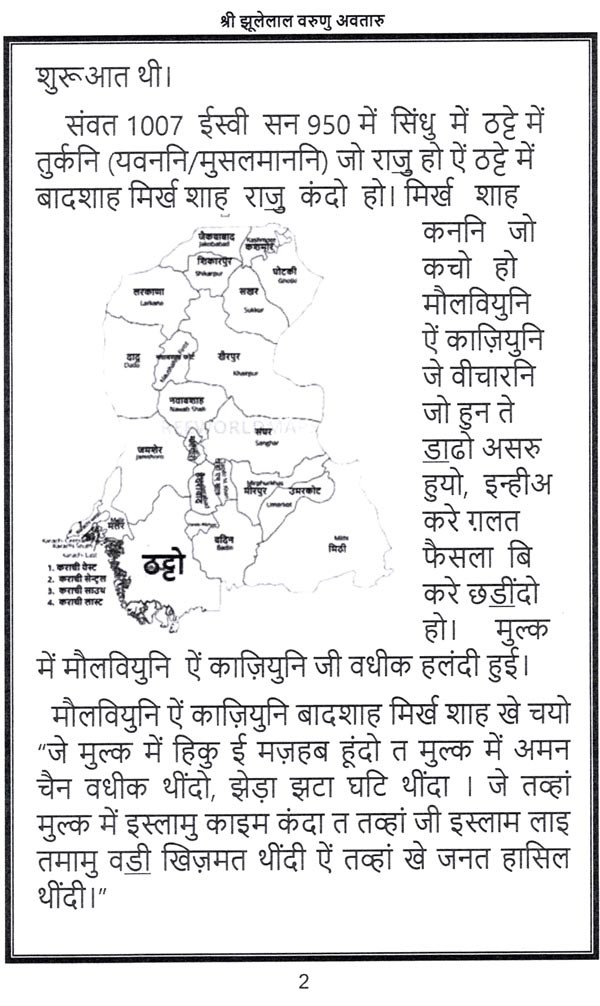 श्री झूलेलाल वरुणु अवतारु
शुरूआत थी।
संवत 1007 ईस्वी सन 950 में सिंधु में ठट्टे में
तुर्कनि (यवननि/मुसलमाननि) जो राजु॒ हो ऐं ठट्टे में
बादशाह मिर्ख शाह राजु॒ कंदो हो। मिर्ख शाह
कननि जो
कचो हो
मौलवियुनि
ऐं काज़ियुनि
जे वीचारनि
जो हुन ते
डा॒ढो असरु
हुयो, इन्हीअ
करे ग़लत
फैसला बि
करे छडीं॒दो
हो। मुल्क
जैकबाबाद
Jakobabad
Kashmore
कशमोर
शिकारपुर
Shikarpur
घोटकी
Ghotki
लरकाणा
Larkana
सखर
Sukkur
दादू
Dadu
खैरपुर
Khairpur
नवाबशाह
Nawab Shah
सांघर
Sanghar
जमशेर
Jamshoro
हैदराबाद
Mirphurkhas
मीरपुर
उमरकोट
Umerkot
बदिन
Badin
Mithi
मिठी
Karachi Central
Karachi South
Karachi East
ठट्टो
1. कराची वेस्ट
2. कराची सेन्ट्रल
3. कराची साउथ
4. कराची लास्ट
में मौलवियुनि ऐं काज़ियुनि जी वधीक हलंदी हुई।
मौलवियुनि ऐं काज़ियुनि बादशाह मिर्ख शाह खे चयो
“जे मुल्क में हिकु ई मज़हब हूंदो त मुल्क में अमन
चैन वधीक थींदो, झेड़ा झटा घटि थींदा । जे तव्हां
मुल्क में इस्लामु काइम कंदा त तव्हां जी इस्लाम लाइ
तमामु वडी॒ खिज़मत थींदी ऐं तव्हां खे जनत हासिल
थींदी।”
2